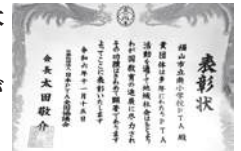 表彰状
福山市立南小学校PTA殿
貴団体は多年にわたりPTA
活動を通して地域社会はもとより
わが国教育の進展に尽力され
その功績はきわめて顕著であります
よってここに表彰いたします
令和六年十一月十五日
公益社団法人 日本PTA全国協議会
会長 太田敬介